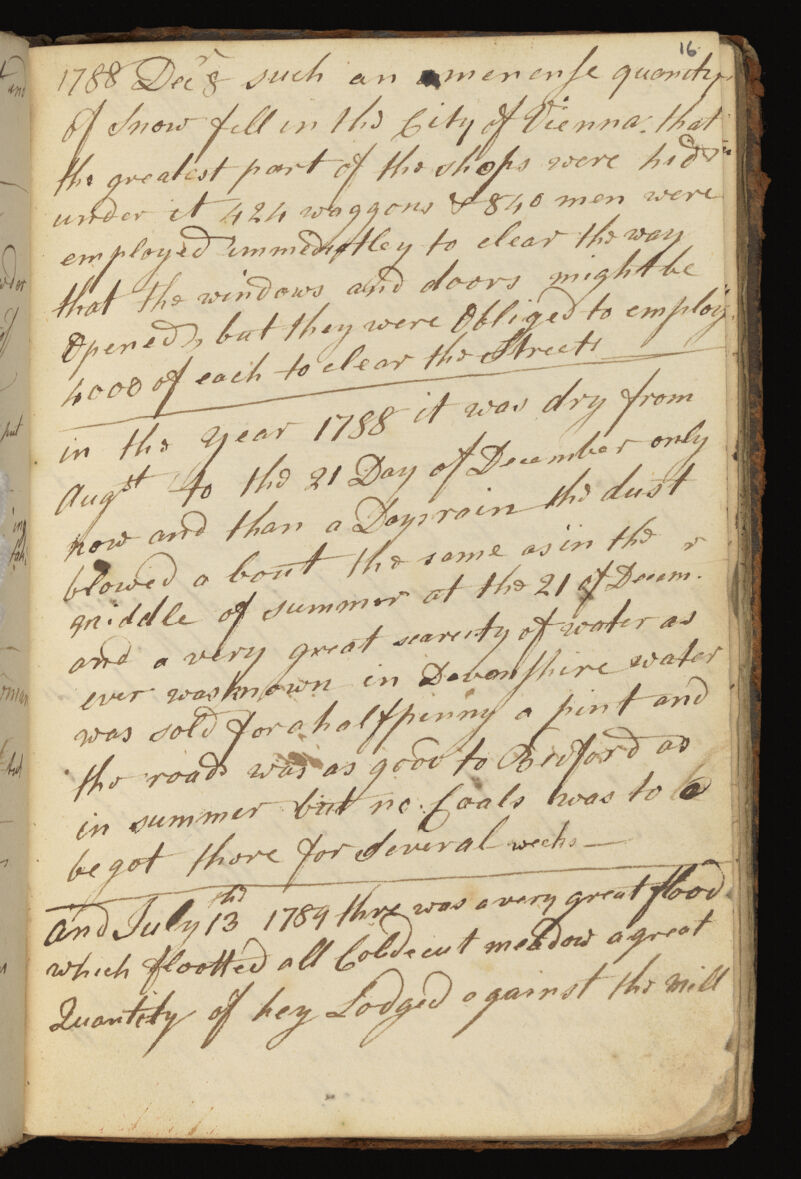 16
1788 Decr 8 such an amenense quantity
of Snow fell in the City of Vienna. that
the greatest part of the shops were hid
under it 424 waggons & 840 men were
employed immediatley to clear the way
that the windows and doors might be
Opened, but they were Obliged to employ
4000 of each to clear the Streets
in the year 1788 it was dry from
Augst to the 21 Day of December only
now and than a Days rain the dust
blowed a bout the same as in the
middle of summer at the 21 of Decemr.
and a very great scarcity of water as
ever was known in Devonshire water
was sold for a halfpenny a pint and
the roads was as good to Bedford as
in summer but no Coals was to
be got there for Several weeks —
and July 13th 1789 thre was a very great flood
which flootted all Coldecut meadow a great
Quantity of hey Lodged against the mill